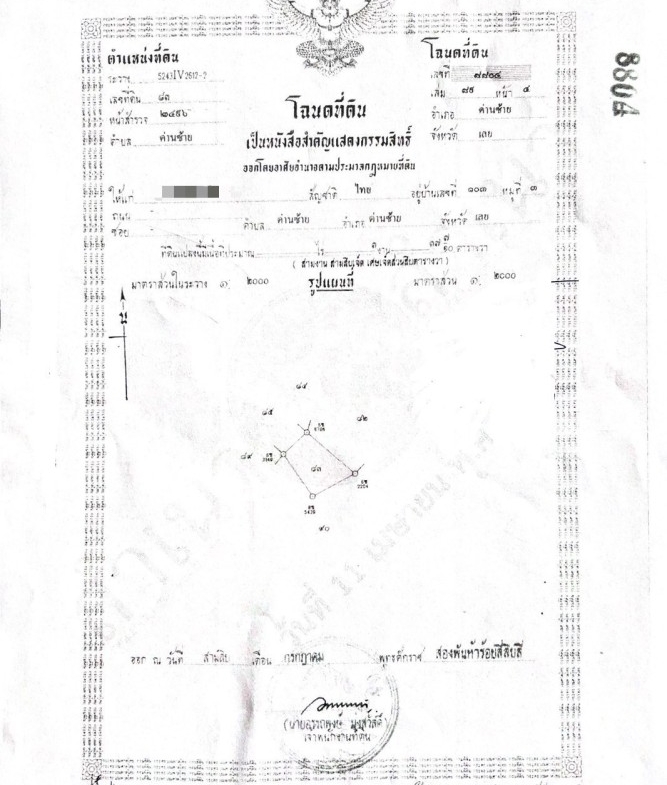 ตำแหน่งที่ดิน
ระวาง 5243 IV 2612-2
เลขที่ดิน ๘๓
หน้าสำรวจ ๒๔๕๖
ตำบล ด่านซ้าย
โฉนดที่ดิน
เลขที่ ๗๗๐๔
เล่ม ๗๘ หน้า ๔
อำเภอ ด่านซ้าย
จังหวัด เลย
8804
โฉนดที่ดิน
เป็นหนังสือสำคัญแสดงกรรมสิทธิ์
ออกโดยอาศัยอำนาจตามประมวลกฎหมายที่ดิน
ให้แก่ สัญชาติ ไทย อยู่บ้านเลขที่ ๑๐๓ หมู่ที่ ๓
ถนน -
ซอย - ตำบล ด่านซ้าย อำเภอ ด่านซ้าย จังหวัด เลย
ที่ดินแปลงนี้มีเนื้อที่ประมาณ - ไร่ ๓ งาน ๓๗ ๗/๑๐ ตารางวา
( สามงาน สามสิบเจ็ด เศษเจ็ดส่วนสิบตารางวา )
มาตราส่วนในระวาง ๑: ๒๐๐๐ รูปแผนที่ มาตราส่วน ๑: ๒๐๐๐
น
๘๔
๘๕
๘๒
๘๙
๘๓
๙๐
ออก ณ วันที่ สามสิบ เดือน กรกฎาคม พุทธศักราช สองพันห้าร้อยสี่สิบสี่
เจ้าพนักงานที่ดิน